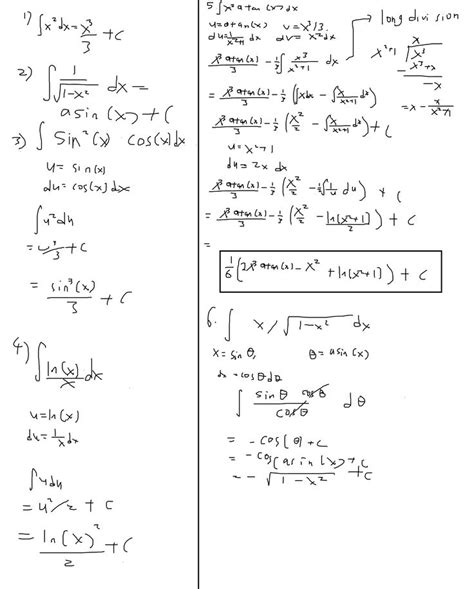 1) ∫ x² dx = x³/3 + c
2) ∫ 1/√(1-x²) dx =
asin(x) + C
3) ∫ sin²(x) cos(x) dx
u = sin(x)
du = cos(x) dx
∫ u² du
= u³/3 + c
= sin³(x)/3 + C
4) ∫ ln(x)/x dx
u = ln(x)
du = 1/x dx
∫ u du
= u²/2 + C
= ln(x)²/2 + C
5 ∫ x² atan(x) dx
u = atan(x) v = x³/3.
du = 1/(x²+1) dx dv = x² dx
x³ atan(x)/3 - 1/3 ∫ x³/(x²+1) dx
= x³ atan(x)/3 - 1/3 (∫ x dx - ∫ x/(x²+1) dx)
x³ atan(x)/3 - 1/3 (x²/2 - ∫ x/(x²+1) dx) + C
u = x²+1
du = 2x dx
x³ atan(x)/3 - 1/3 (x²/2 - 1/2 ∫ 1/u du) + C
= x³ atan(x)/3 - 1/3 (x²/2 - ln(x²+1)/2) + C
=
1/6 (2x³ atan(x) - x² + ln(x²+1)) + C
long division
x
x²+1 √ x³
-x³+x
-x
= x - x/(x²+1)
6. ∫ x/√(1-x²) dx
x = sin θ, θ = asin(x)
dx = cos θ dθ
∫ sin θ cos θ / cos θ dθ
= -cos(θ) + C
= -cos(asin(x)) + C
= -√(1-x²) + C